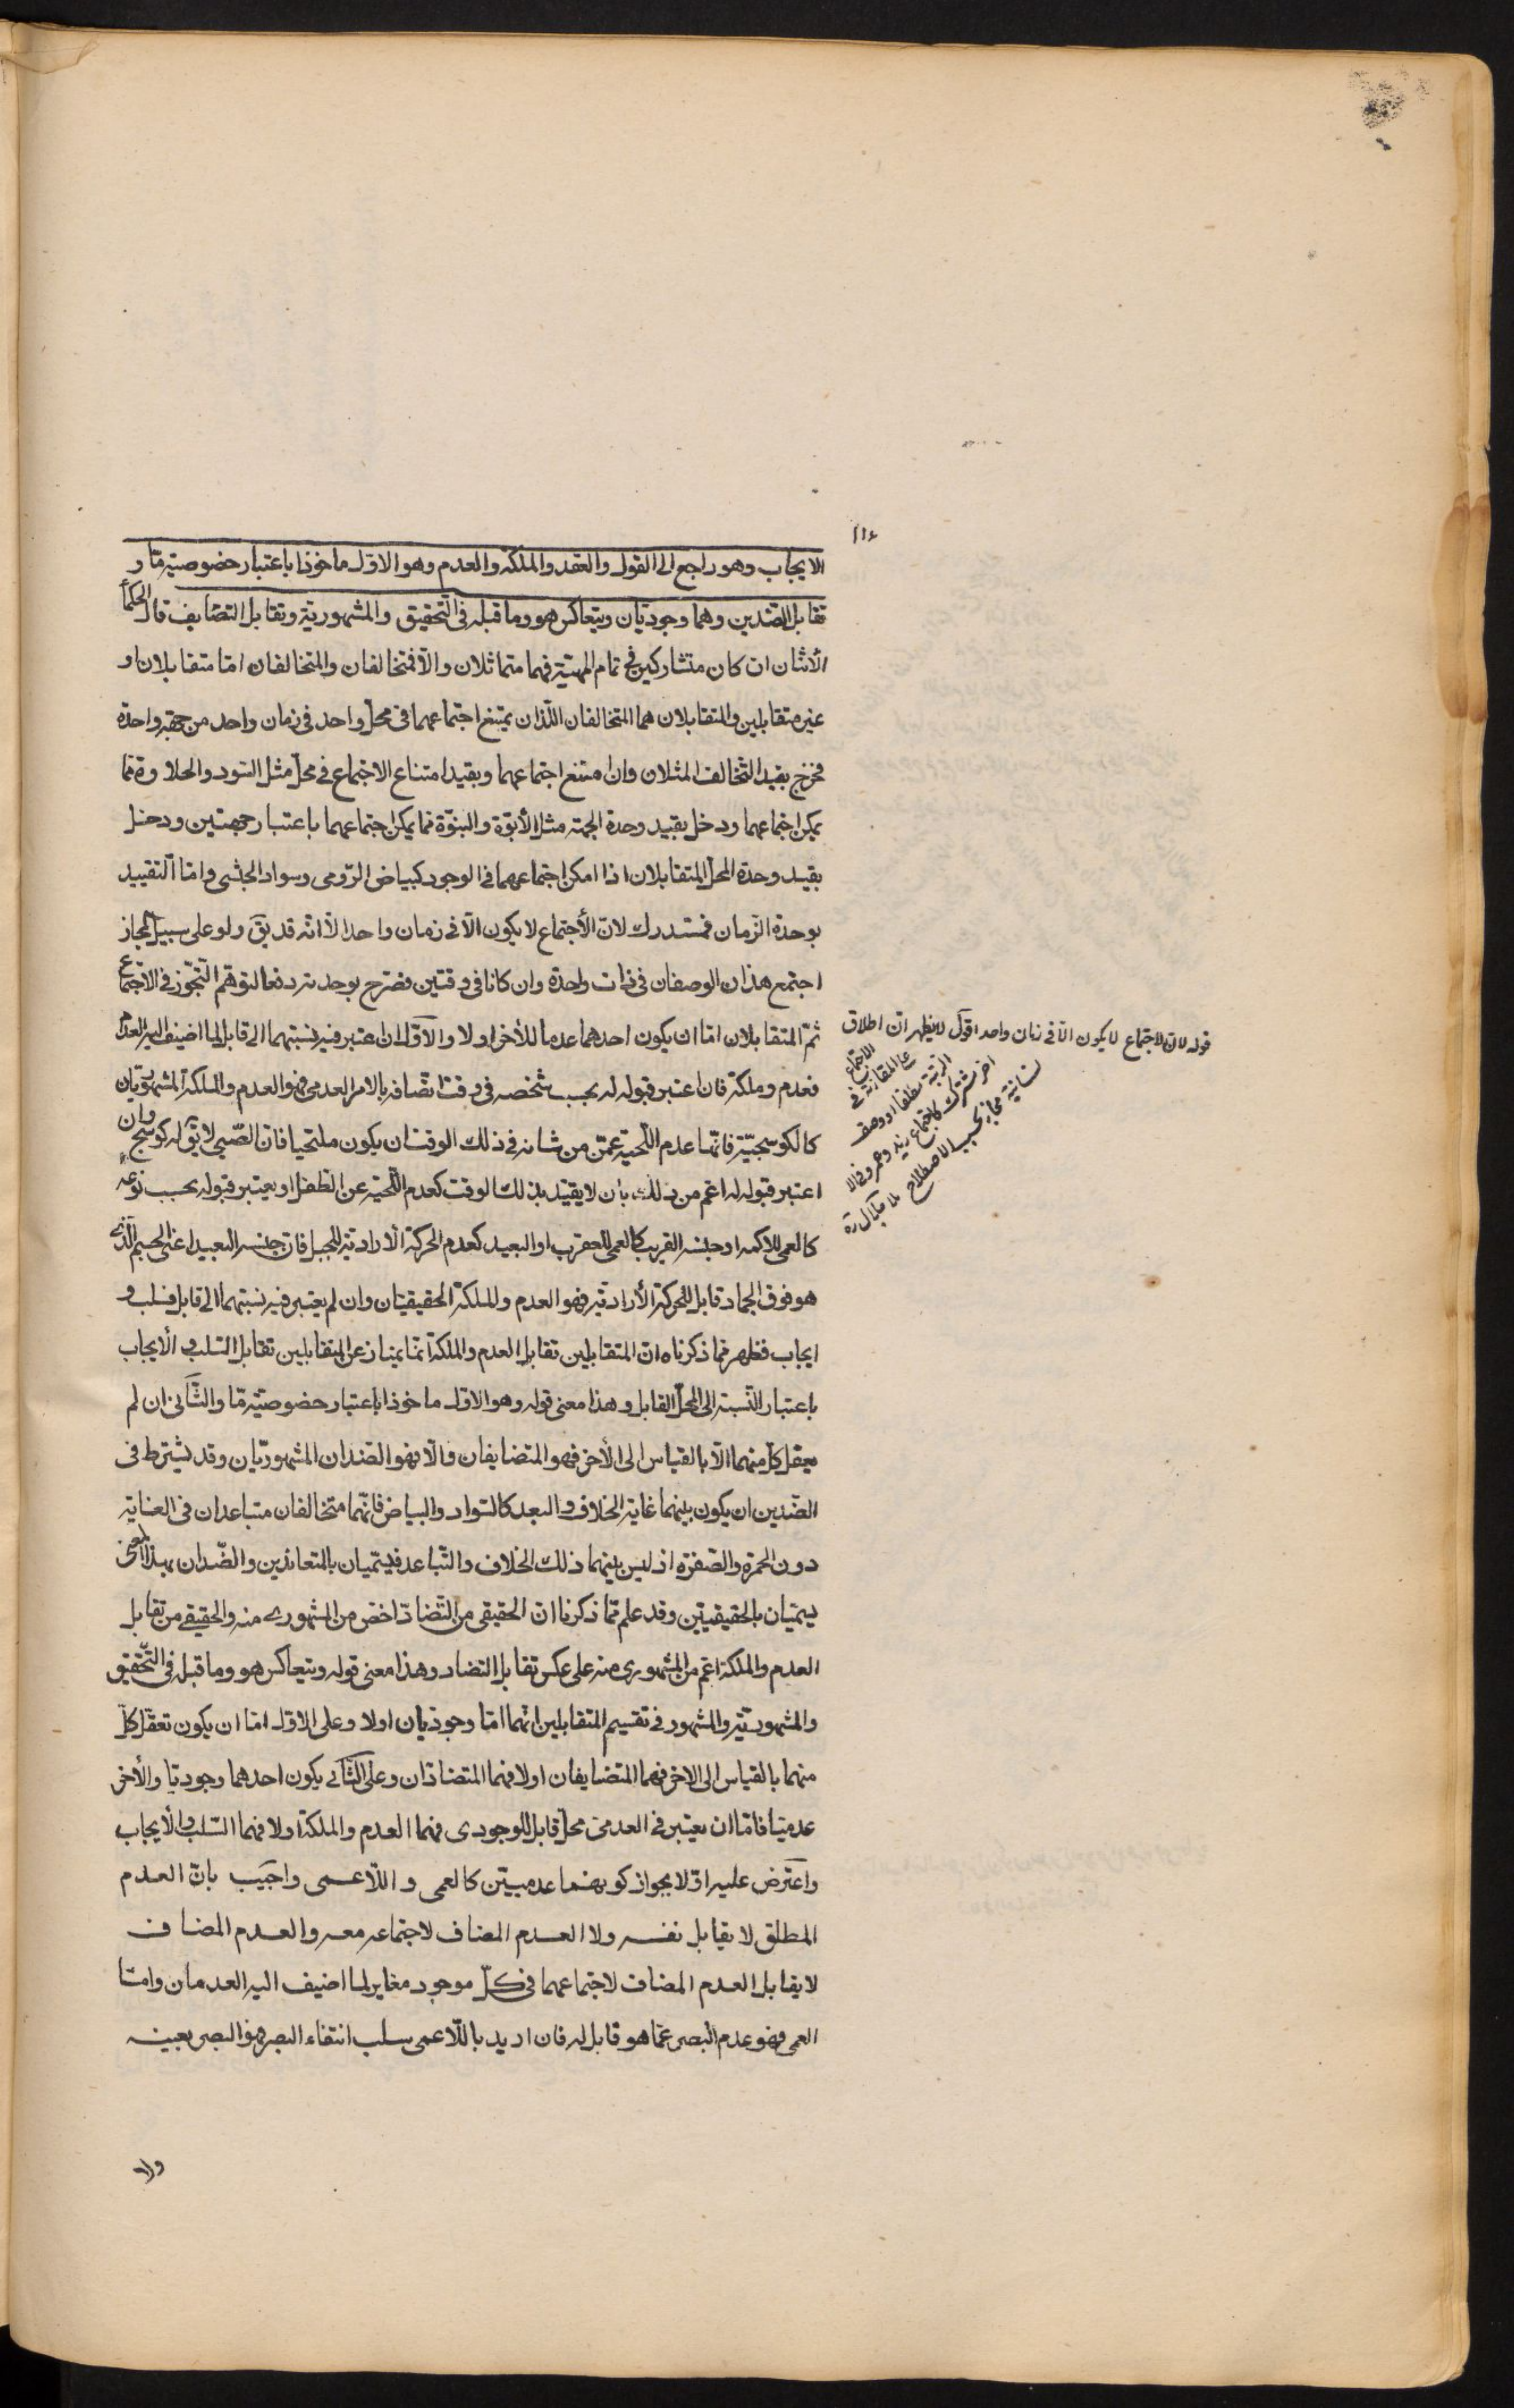 ١١٤
الايجاب وهو راجع الى القول والعقد والملكة والعدم وهو الاول ماخوذا باعتبار خصوصية ما و
تقابل الضدين وهما وجوديان ويتعاكس هو وما قبله فى التحقيق والمشهورية وتقابل التضايف قال الحكمأ
الأثنان ان كان متشاركين فى تمام المهيّة فهما متماثلان والّا فمتخالفان والمتخالفان امّا متقابلان او
غير متقابلين والمتقابلان هما المتخالفان اللّذان يمتنع اجتماعهما فى محلّ واحد فى زمان واحد من جهة واحدة
فخرج بقيد التّخالف المثلان وان امتنع اجتماعهما وبقيد امتناع الاجتماع فى محلّ مثل السّود والحلاوة ممّا
يمكن اجتماعهما ودخل بقييد وحدة الجهة مثل الأبوّة والبنوّة ممّا يمكن اجتماعهما باعتبار جهتين ودخل
بقيد وحدة المحلّ المتقابلان اذا امكن اجتماعهما فى الوجود كبياض الرّومى وسواد الحبشى وامّا التّقييد
بوحدة الزّمان فمستدرك لانّ الأجتماع لا يكون الّا فى زمان واحد الّا انّه قد يقٓ ولو على سبيل المجاز
اجتمع هذان الوصفان فى ذات واحدة وان كانا فى وقتين فصّرح بوحدته دفعا لتوهّم التّجوّز فى الاجتماع
ثمّ المتقابلان امّا ان يكون احدهما عدما للأخر او لا والاوّل ان اعتبر فيه نسبتهما الى قابل لما اضيف اليه العدم
فعدم وملكة فان اعتبر قبوله له بحسب شخصه فى وقت اتّصافه بالامر العدمى فهو العدم والملكة المشهوريّان
كالكوسجيّة فانّها عدم اللّحية عمّن من شانه فى ذلك الوقت ان يكون ملتحيا فانّ الصّبى لا يقٓ له كوسج وان
اعتبر قبوله له اعمّ من ذلك بان لا يقيّد بذلك الوقت كعدم اللّحية عن الطّفل او يعتبر قبوله بحسب نوعه
كالعمى للاكمه او جنسه القريب كالعمى للعقرب او البعيد كعدم الحركة الأراديّة للجبل فانّ جنسه البعيد اعنى الجسم الّذى
هو فوق الجماد قابل للحركة الأراديّة فهو العدم والملكة الحقيقيّان وان لم يعتبر فيه نسبتهما الى قابل فسلب و
ايجاب فظهر ممّا ذكرناه انّ المتقابلين تقابل العدم والملكة انّما يمتاز عن المتقابلين تقابل السّلب والأيجاب
باعتبار النّسبة الى المحلّ القابل وهذا معنى قوله وهو الاول ماخوذا باعتبار خصوصيّة مّا والثّانى ان لم
يعقل كلّ منهما الّا بالقياس الى الأخر فهو المتضايفان والّا فهو الضّدان المشهوريّان وقد يشترط فى
الضّدين ان يكون بينهما غاية الخلاف والبعد كالسّواد والبياض فانّهما متخالفان متباعدان فى الغاية
دون الحمرة والصّفرة اذ ليس بينهما ذلك الخلاف والتّباعد فيسمّيان بالمتعاندين والضّدان بهذا المعنى
يسمّيان بالحقيقيّين وقد علم ممّا ذكرنا انّ الحقيقى من التّضادّ اخصّ من المشهورى منه والحقيقى من تقابل
العدم والملكة اعمّ من المشهورى منه على عكس تقابل التضاد وهذا معنى قوله ويتعاكس هو وما قبله فى التّحقيق
والمشهوريّة والمشهور فى تقسيم المتقابلين انّهما امّا وجوديان او لا وعلى الاول امّا ان يكون تعقّل كلّ
منهما بالقياس الى الاخر فهما المتضايفان او لا فهما المتضادّان وعلى الثّانى يكون احدهما وجوديّا والأخر
عدميّا فامّا ان يعتبر فى العدمىّ محلّ قابل للوجودى فهما العدم والملكة او لا فهما السّلب والأيجاب
واعترض عليه اوّلا بجواز كونهما عدميّين كالعمى واللّاعمى واجيب بانّ العدم
المطلق لا يقابل نفسه ولا العدم المضاف لاجتماعه معه والعدم المضاف
لا يقابل العدم المضاف لاجتماعهما فى كلّ موجود مغاير لما اضيف اليه العدمان وامّا
العمى فهو عدم البصر عمّا هو قابل له فان اريد باللّاعمى سلب انتفاء البصر فهو البصر بعينه
قوله لانّ الاجتماع لا يكون الّا فى زمان واحد اقول لا يظهر انّ اطلاق
الاجتماع
على المقارنة فى
الرتبة مطلقا او وصف
اخر مشترك كاجتماع زيد وعمرو فى
مجاز بحسب الاصطلاح